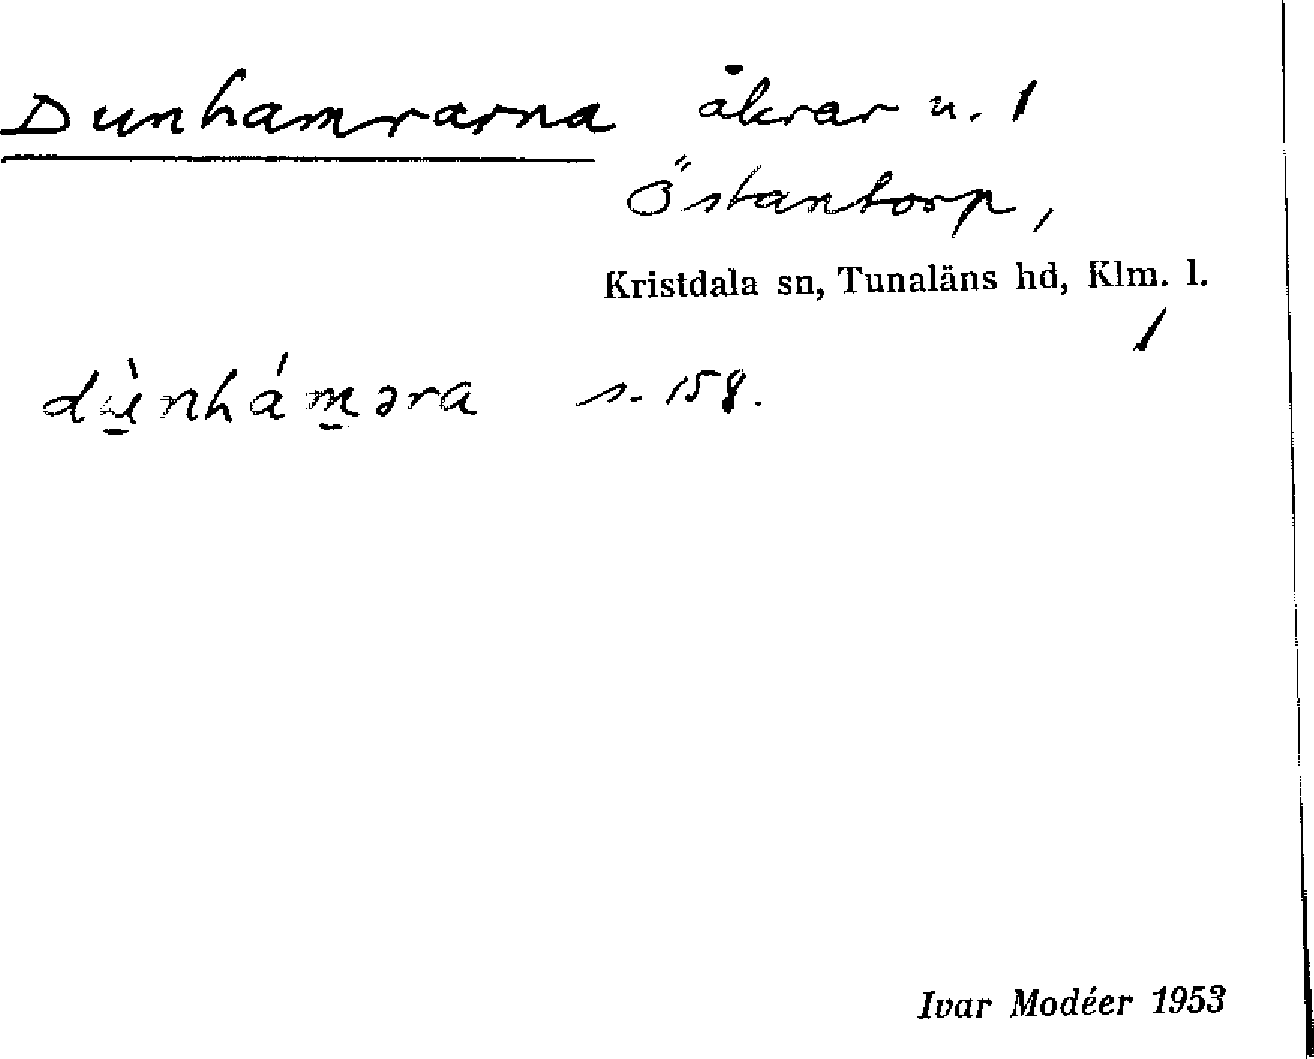 Dunhamrarna åkrar u. 1
Östantorp,
Kristdala sn, Tunaläns hd, Klm. l.
1
dù̱nhám̱əra s. 158.
Ivar Modéer 1953